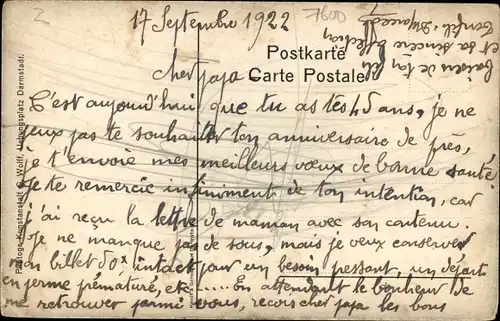 17 Septembre 1922
7600
Postkarte
Carte Postale
cher papa
C'est aujourd'hui que tu as tes 45 ans, je ne
peux pas te souhaiter ton anniversaire de près,
je t'envoie mes meilleurs vœux de bonne santé
je te remercie infiniment de ton intention, car
j'ai reçu la lettre de maman avec son contenu.
Je ne manque pas de sous, mais je veux conserver
mon billet intact pour un besoin pressant, un départ
en perme prématuré, etc ..... En attendant le bonheur de
me retrouver parmi vous, reçois cher papa les bons
baisers de ton fils
et sa sincère affection
Photogr. Kunstanstalt G. Wolff, Uebungsplatz Darmstadt.